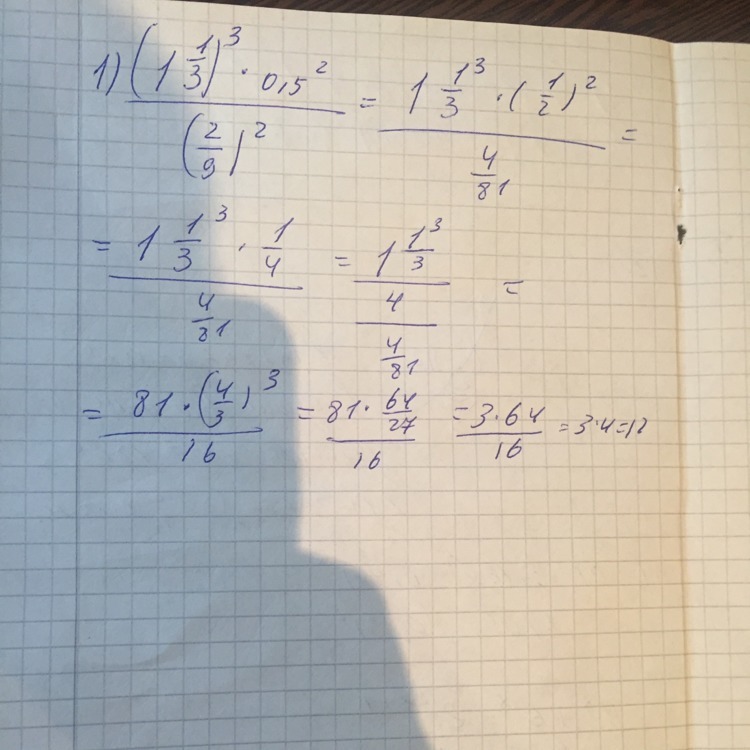 1) ((1 1/3)^3 · 0,5^2) / (2/9)^2 = (1 1/3^3 · (1/2)^2) / (4/81) =
= (1 1/3^3 · 1/4) / (4/81) = ((1 1/3^3) / 4) / (4/81) =
= (81 · (4/3)^3) / 16 = (81 · 64/27) / 16 = (3·64) / 16 = 3·4=12